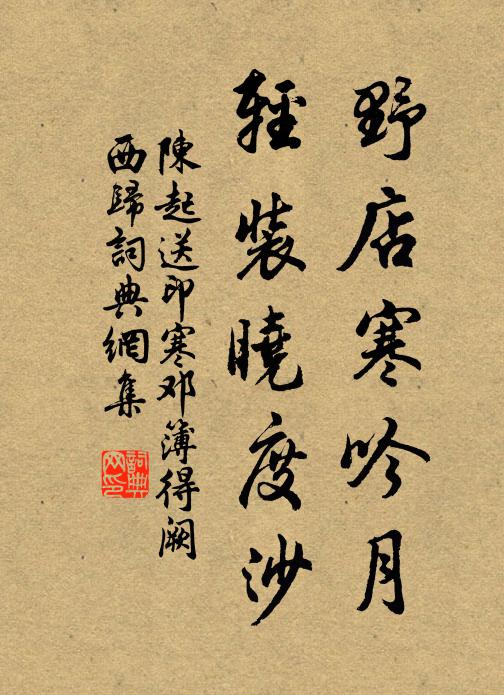 野店寒吟月
輕裝曉度沙
陳起送印寒邓簿得闕
西歸詞典網集
詞典
网印